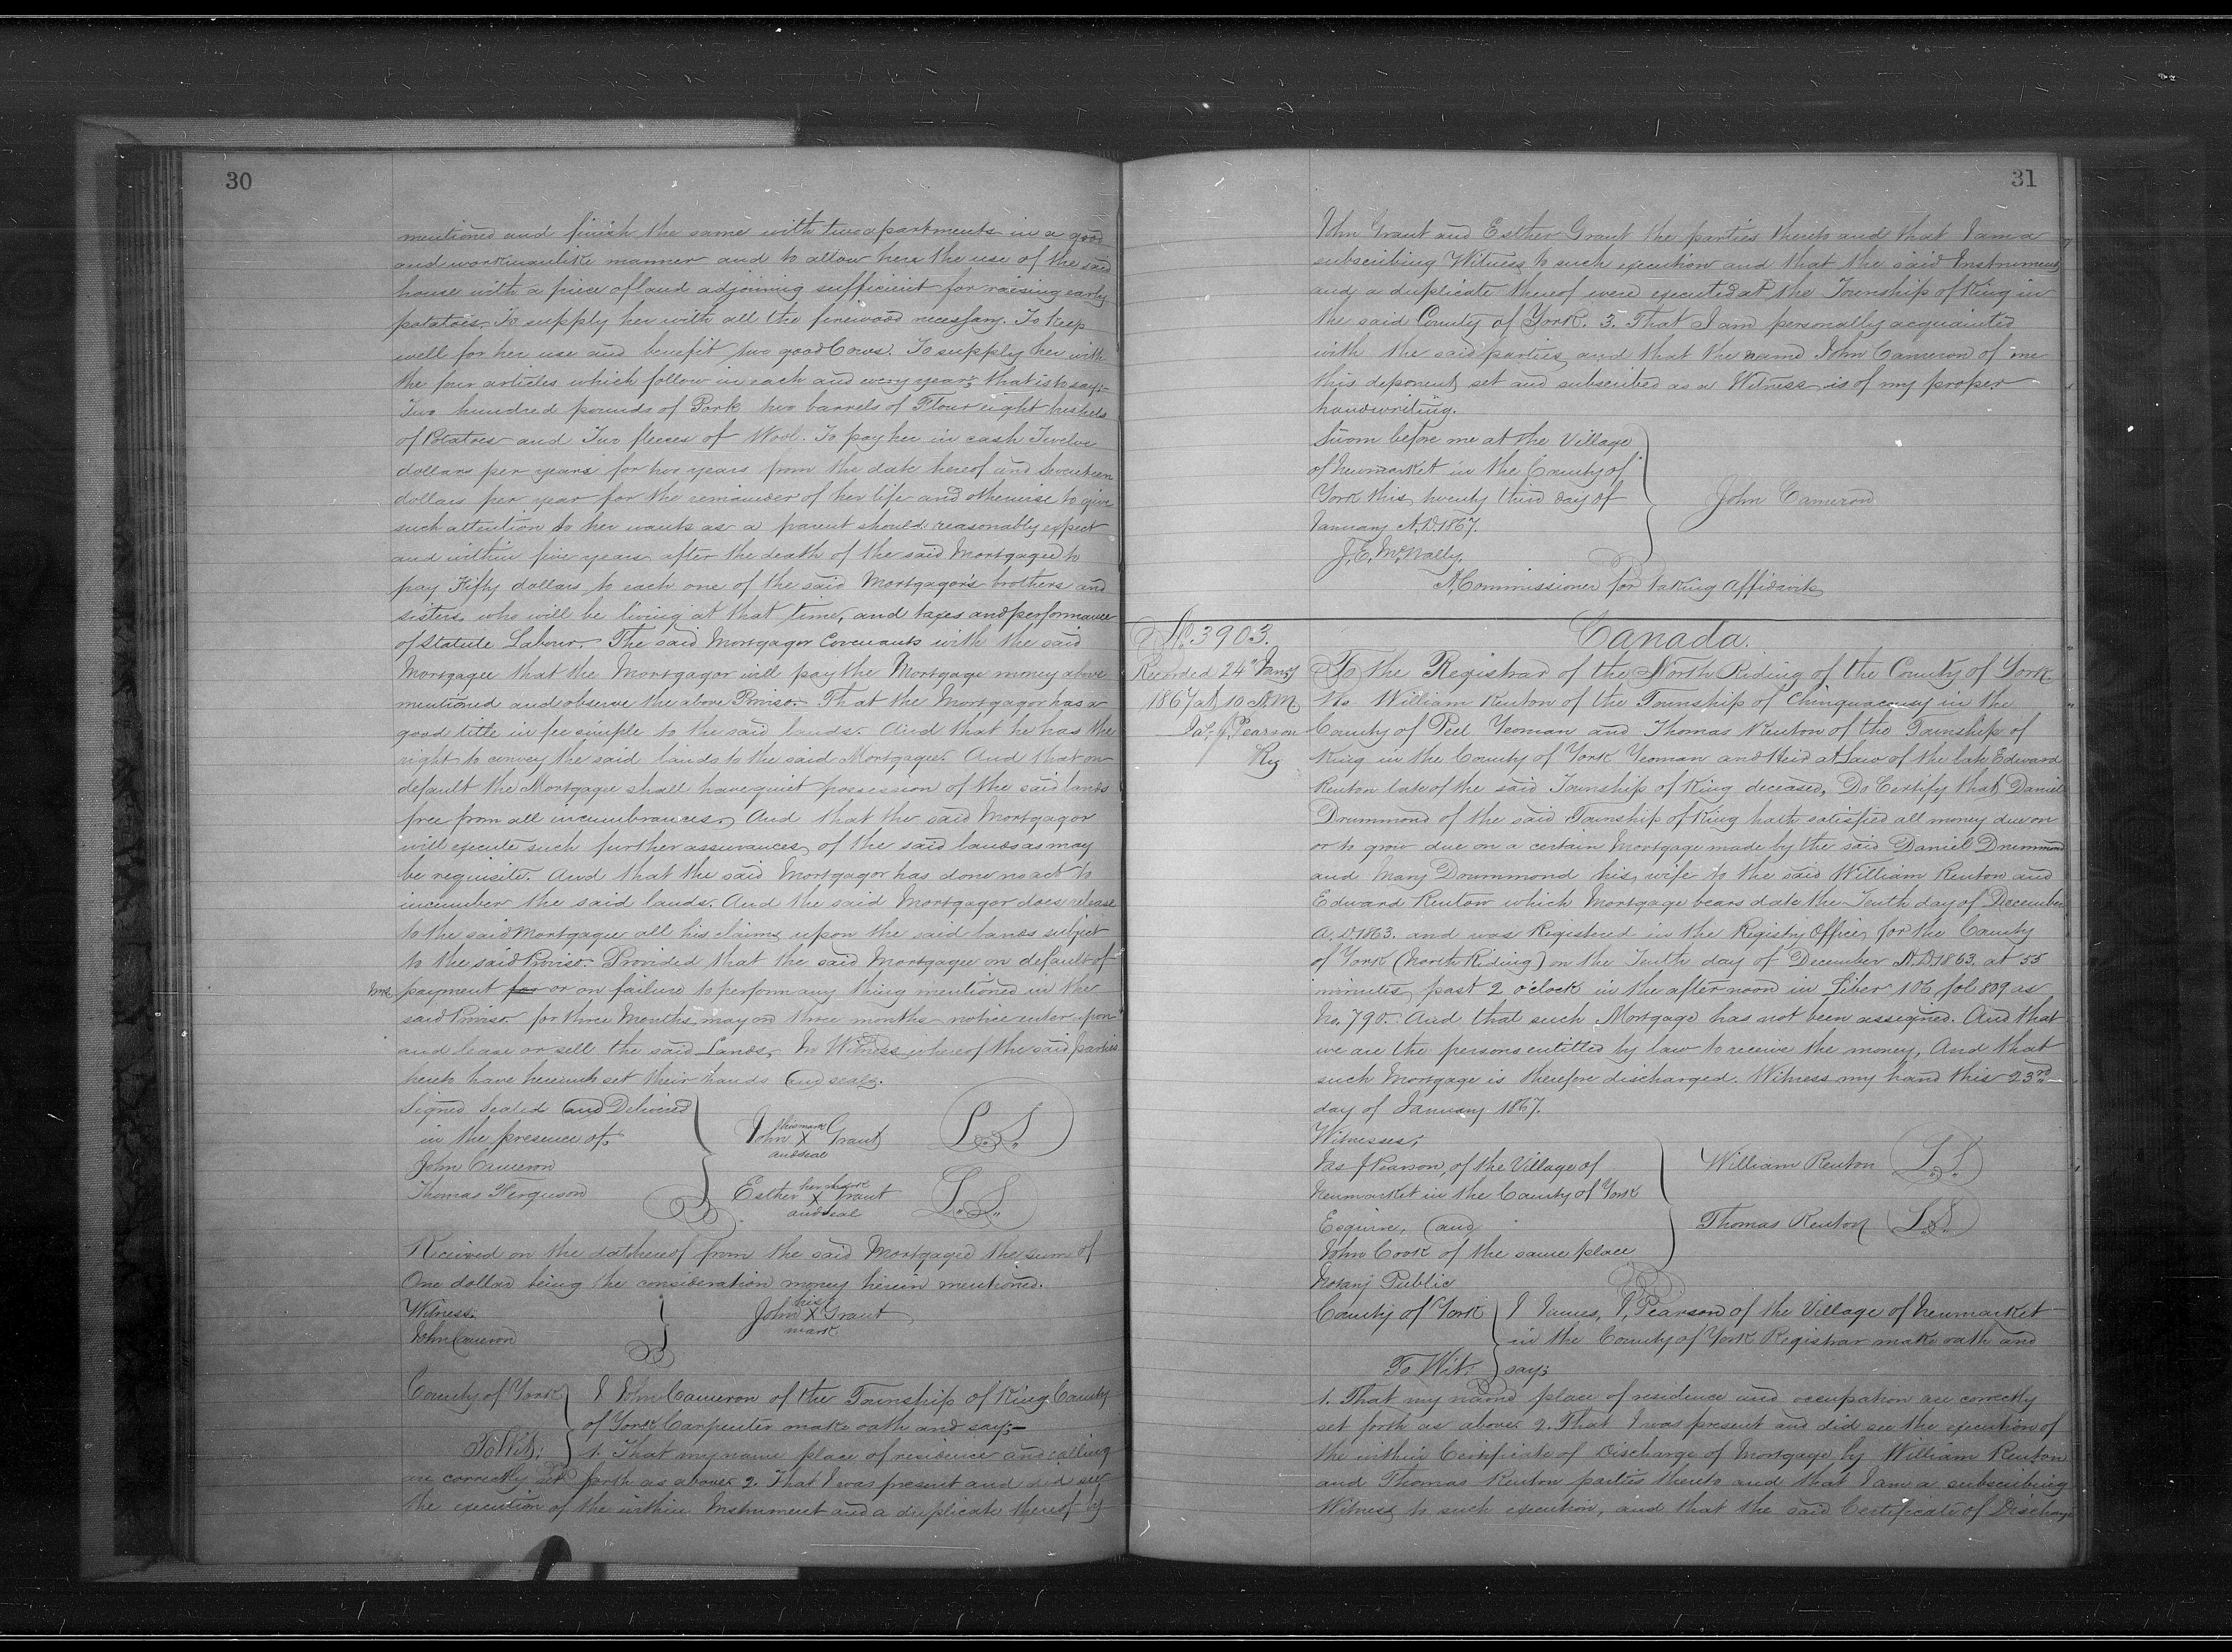 30
mentioned and finish the same with two apartments in a good
and workmanlike manner and to allow her the use of the said
house with a piece of land adjoining sufficient for raising early
potatoes. To supply her with all the firewood necessary. To keep
well for her use and benefit two good Cows. To supply her with
the four articles which follow in each and every year; that is to say:-
Two hundred pounds of Pork two barrels of Flour eight bushels
of Potatoes and Two fleeces of Wool. To pay her in cash Twelve
dollars per years for two years from the date hereof and Seventeen
dollars per year for the remainder of her life and otherwise to give
such attention to her wants as a parent should reasonably expect
and within five years after the death of the said Mortgagee to
pay Fifty dollars to each one of the said Mortgagor's brothers and
sisters who will be living at that time, and taxes and performance
of Statute Labour. The said Mortgagor Covenants with the said
Mortgagee that the Mortgagor will pay the Mortgage money above
mentioned and observe the above Proviso. That the Mortgagor has a
good title in fee simple to the said lands. And that he has the
right to convey the said lands to the said Mortgagee. And that on
default the Mortgagee shall have quiet possession of the said lands
free from all incumbrances. And that the said Mortgagor
will execute such further assurances of the said lands as may
be requisite. And that the said Mortgagor has done no act to
incumber the said lands. And the said Mortgagor does release
to the said Mortgagee all his claims upon the said lands subject
to the said Proviso. Provided that the said Mortgagee on default of
payment for or on failure to perform any thing mentioned in the
said Proviso for three Months may on three months notice enter upon
and lease or sell the said Lands. In Witness whereof the said parties
hereto have hereunto set their hands and seals.
Signed Sealed and Delivered
in the presence of
John Cameron
Thomas Ferguson
his mark
John X Grant
and seal
L.S.
her mark
Esther X Grant
and seal
L.S.
Received on the date hereof from the said Mortgagee the sum of
One dollar being the consideration money herein mentioned.
Witness.
John Cameron
his
John X Grant
mark
County of York
To Wit:
I John Cameron of the Township of King County
of York Carpenter make oath and say:-
1. That my name place of residence and calling
are correctly set forth as above. 2. That I was present and did see
the execution of the within Instrument and a duplicate thereof by
31
John Grant and Esther Grant the parties thereto and that I am a
subscribing Witness to such execution and that the said Instrument
and a duplicate thereof were executed at the Township of King in
the said County of York. 3. That I am personally acquainted
with the said parties and that the name John Cameron of me
this deponent set and subscribed as a Witness is of my proper
handwriting.
Sworn before me at the Village
of Newmarket in the County of
York this twenty third day of
January A.D. 1867.
J. E. McNally
John Cameron
A Commissioner for taking Affidavits
No. 3903.
Recorded 24th Jany
1867 at 10 A.M
Jas. J Pearson
Reg
Canada.
To the Registrar of the North Riding of the County of York.
We William Renton of the Township of Chinguacousy in the
County of Peel Yeoman and Thomas Renton of the Township of
King in the County of York Yeoman and Heir at Law of the late Edward
Renton late of the said Township of King deceased, Do Certify that Daniel
Drummond of the said Township of King hath satisfied all money due on
or to grow due on a certain Mortgage made by the said Daniel Drummond
and Mary Drummond his wife to the said William Renton and
Edward Renton which Mortgage bears date the Tenth day of December
A.D. 1863. and was Registered in the Registry Office for the County
of York (North Riding) on the Tenth day of December A.D. 1863. at 55
minutes past 2 o'clock in the afternoon in Liber 106 fol 809 as
No. 790. And that such Mortgage has not been assigned. And that
we are the persons entitled by law to receive the money, And that
such Mortgage is therefore discharged. Witness my hand this 23rd
day of January 1867.
Witnesses;
Jas J Pearson, of the Village of
Newmarket in the County of York
Esquire, and
John Cook of the same place
Notary Public
William Renton L.S.
Thomas Renton L.S.
County of York
To Wit:
I James, J, Pearson of the Village of Newmarket
in the County of York Registrar make oath and
say;
1. That my name place of residence and occupation are correctly
set forth as above. 2. That I was present and did see the execution of
the within Certificate of Discharge of Mortgage by William Renton
and Thomas Renton parties thereto and that I am a subscribing
Witness to such execution, and that the said Certificate of Discharge